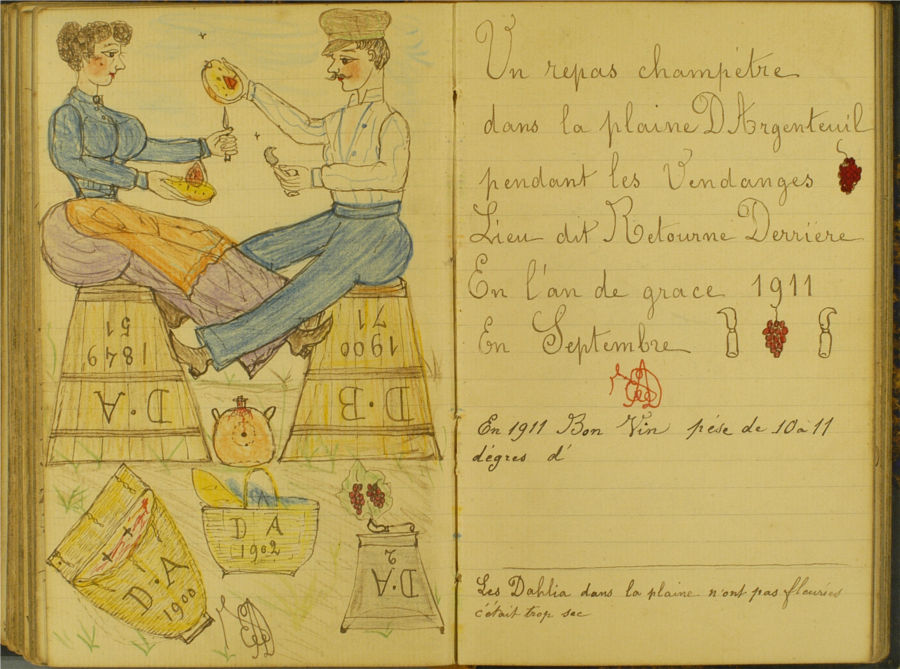 51
1849
D·A
71
1900
D·B
D·A
1900
D A
1902
2
D·A
Un repas champêtre
dans la plaine D'Argenteuil
pendant les Vendanges
Lieu dit Retourne Derrière
En l'an de grace 1911
En Septembre
En 1911 Bon Vin pése de 10 a 11
dégres d'
Les Dahlia dans la plaine n'ont pas fleuries
c'était trop sec